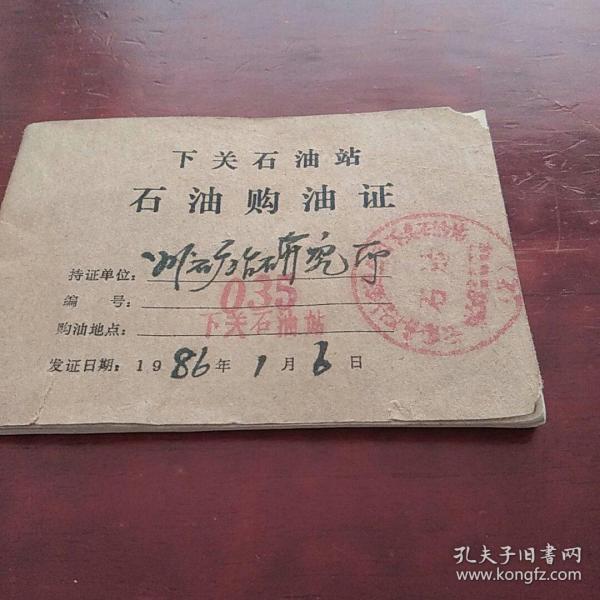 下关石油站
石油购油证
持证单位：州药检研究所
编号：035
购油地点：下关石油站
发证日期：1986年1月6日
石油
孔夫子旧书网
www.kongfz.com